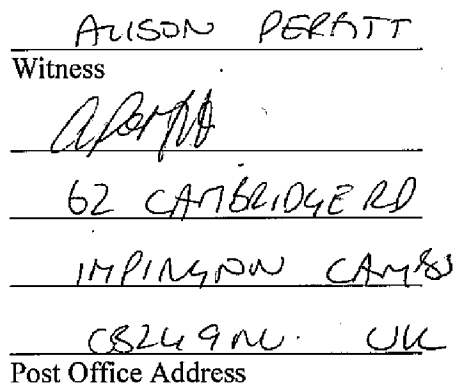 ALISON PERRITT
Witness
62 CAMBRIDGE RD
IMPINGTON CAMBS
CB24 9NU. UK
Post Office Address